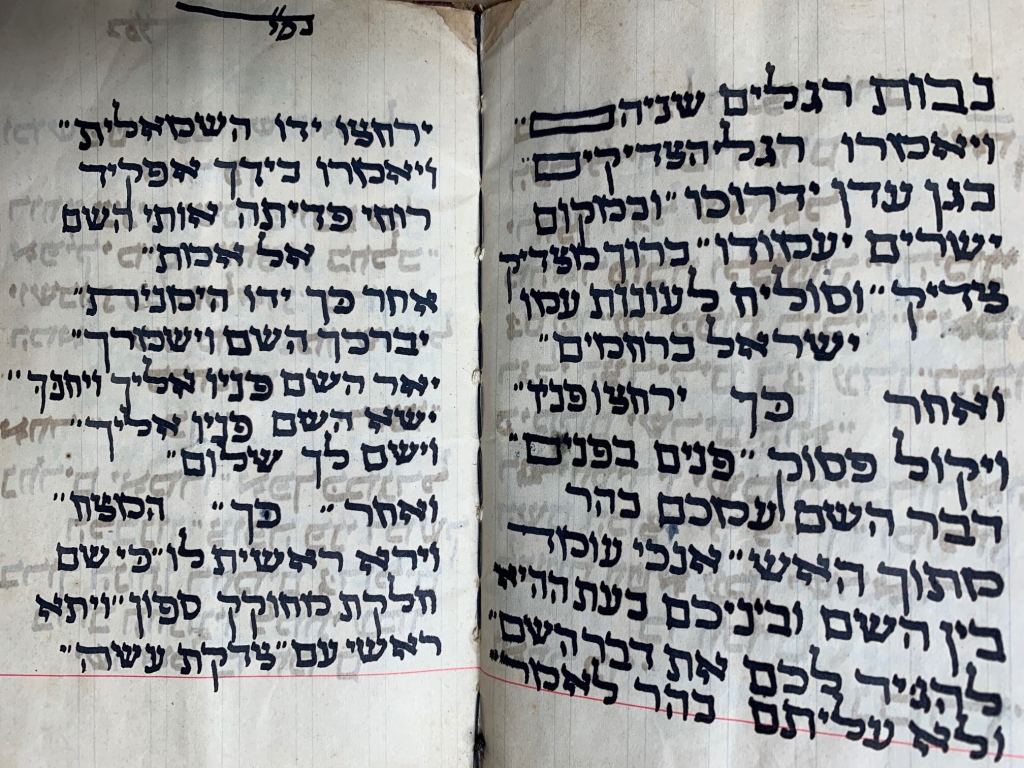 כבות רגלים שניה״
ויאמרו רגלי הצדיקים״
בגן עדן ידרוכו״ ובמקום
ישרים יעמודו״ ברוך מצדיק
צדיק״ וסוליח לעונות עמו
ישראל ברחמים״
ואחר כך ירחצו פניו״
ויקול פסוק״ פנים בפנים״
דבר השם עמכם בהר
מתוך האש״ אנכי עומד
בין השם וביניכם בעת ההיא
להגיד לכם את דבר השם״
ולא עליתם בהר לאמר״
ירחצו ידו השמאלית״
ויאמרו בידך אפקיד
רוחי פדיתה אותי השם
אל אמת״
אחר כך ידו הימנית״
יברכך השם וישמרך״
יאר השם פניו אליך ויחנך״
ישא השם פניו אליך״
וישם לך שלום״
ואחר״ כך״ המצח״
וירא ראשית לו״ כי שם
חלקת מחוקק ספון״ ויתא
ראשי עם״ צדקת עשה״